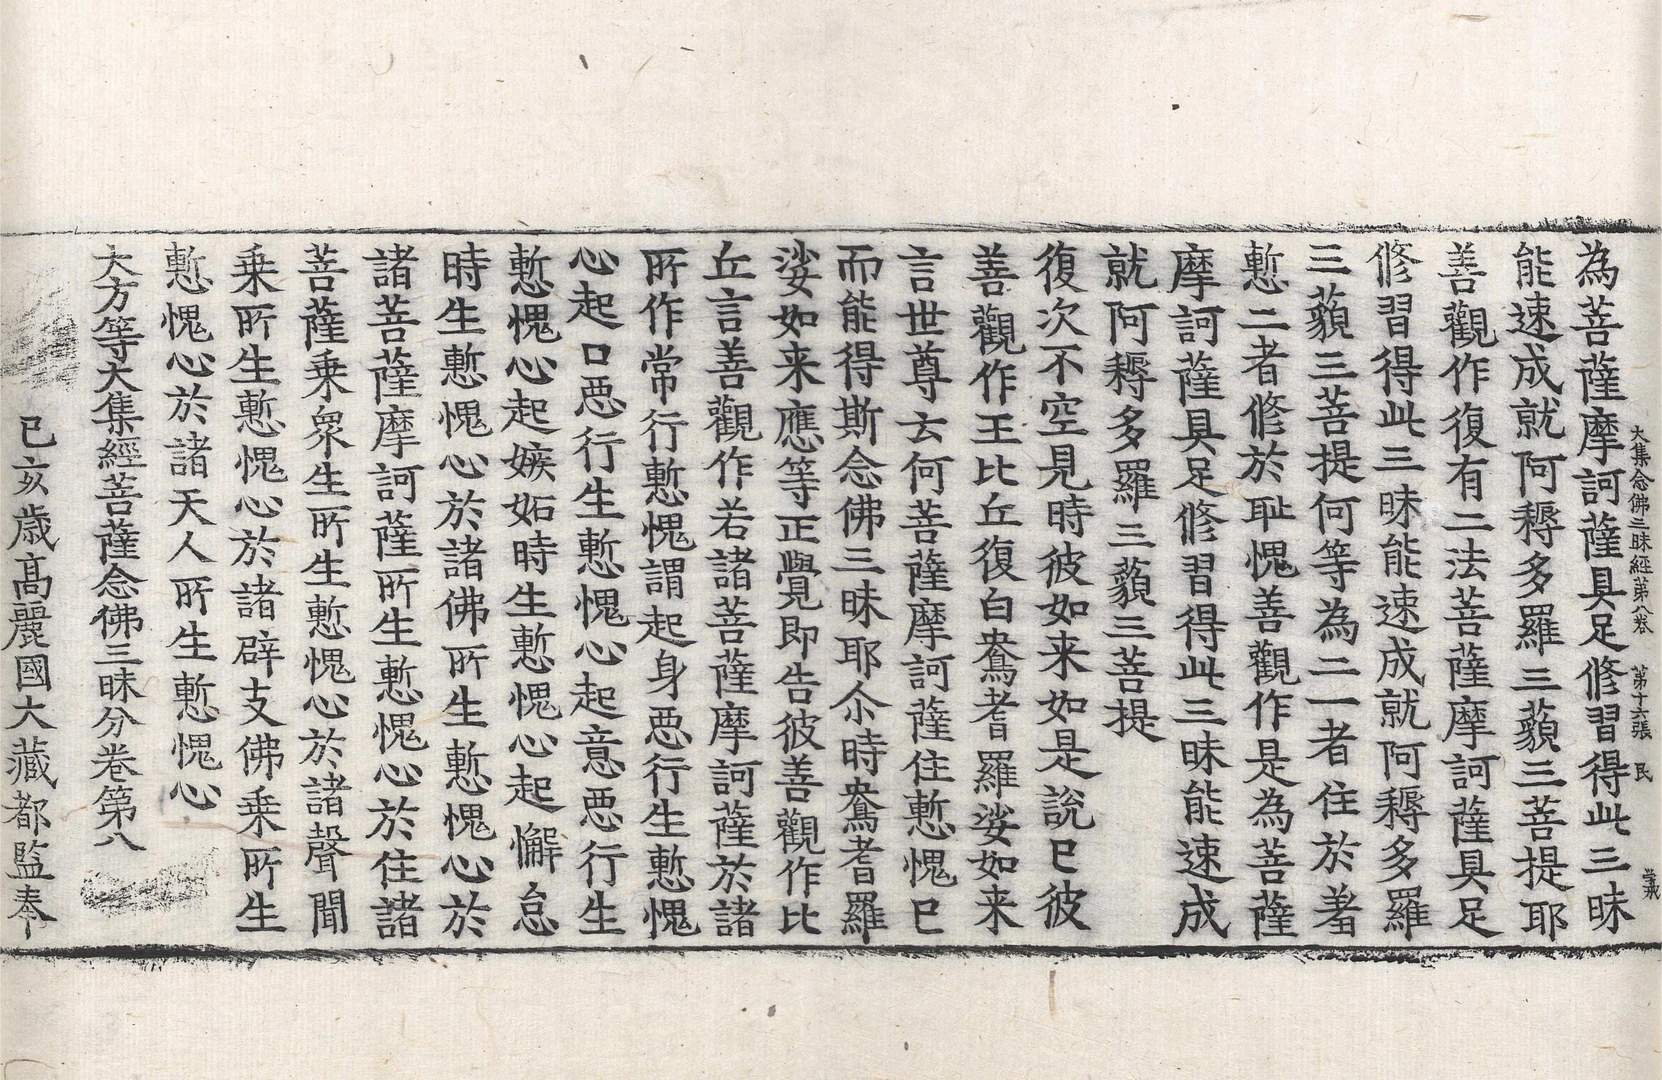 大集念佛三昧經第八卷　第十六張　民
為菩薩摩訶薩具足修習得此三昧
能速成就阿耨多羅三藐三菩提耶
善觀作復有二法菩薩摩訶薩具足
修習得此三昧能速成就阿耨多羅
三藐三菩提何等為二一者住於羞
慙二者修於恥愧善觀作是為菩薩
摩訶薩具足修習得此三昧能速成
就阿耨多羅三藐三菩提
復次不空見時彼如来如是說已彼
善觀作王比丘復白鴦耆羅娑如来
言世尊云何菩薩摩訶薩住慙愧已
而能得斯念佛三昧耶尒時鴦耆羅
娑如来應等正覺即告彼善觀作比
丘言善觀作若諸菩薩摩訶薩於諸
所作常行慙愧謂起身惡行生慙愧
心起口惡行生慙愧心起意惡行生
慙愧心起嫉妬時生慙愧心起懈怠
時生慙愧心於諸佛所生慙愧心於
諸菩薩摩訶薩所生慙愧心於住諸
菩薩乗衆生所生慙愧心於諸聲聞
乗所生慙愧心於諸辟支佛乗所生
慙愧心於諸天人所生慙愧心
大方等大集經菩薩念佛三昧分卷第八
己亥歳高麗國大藏都監奉